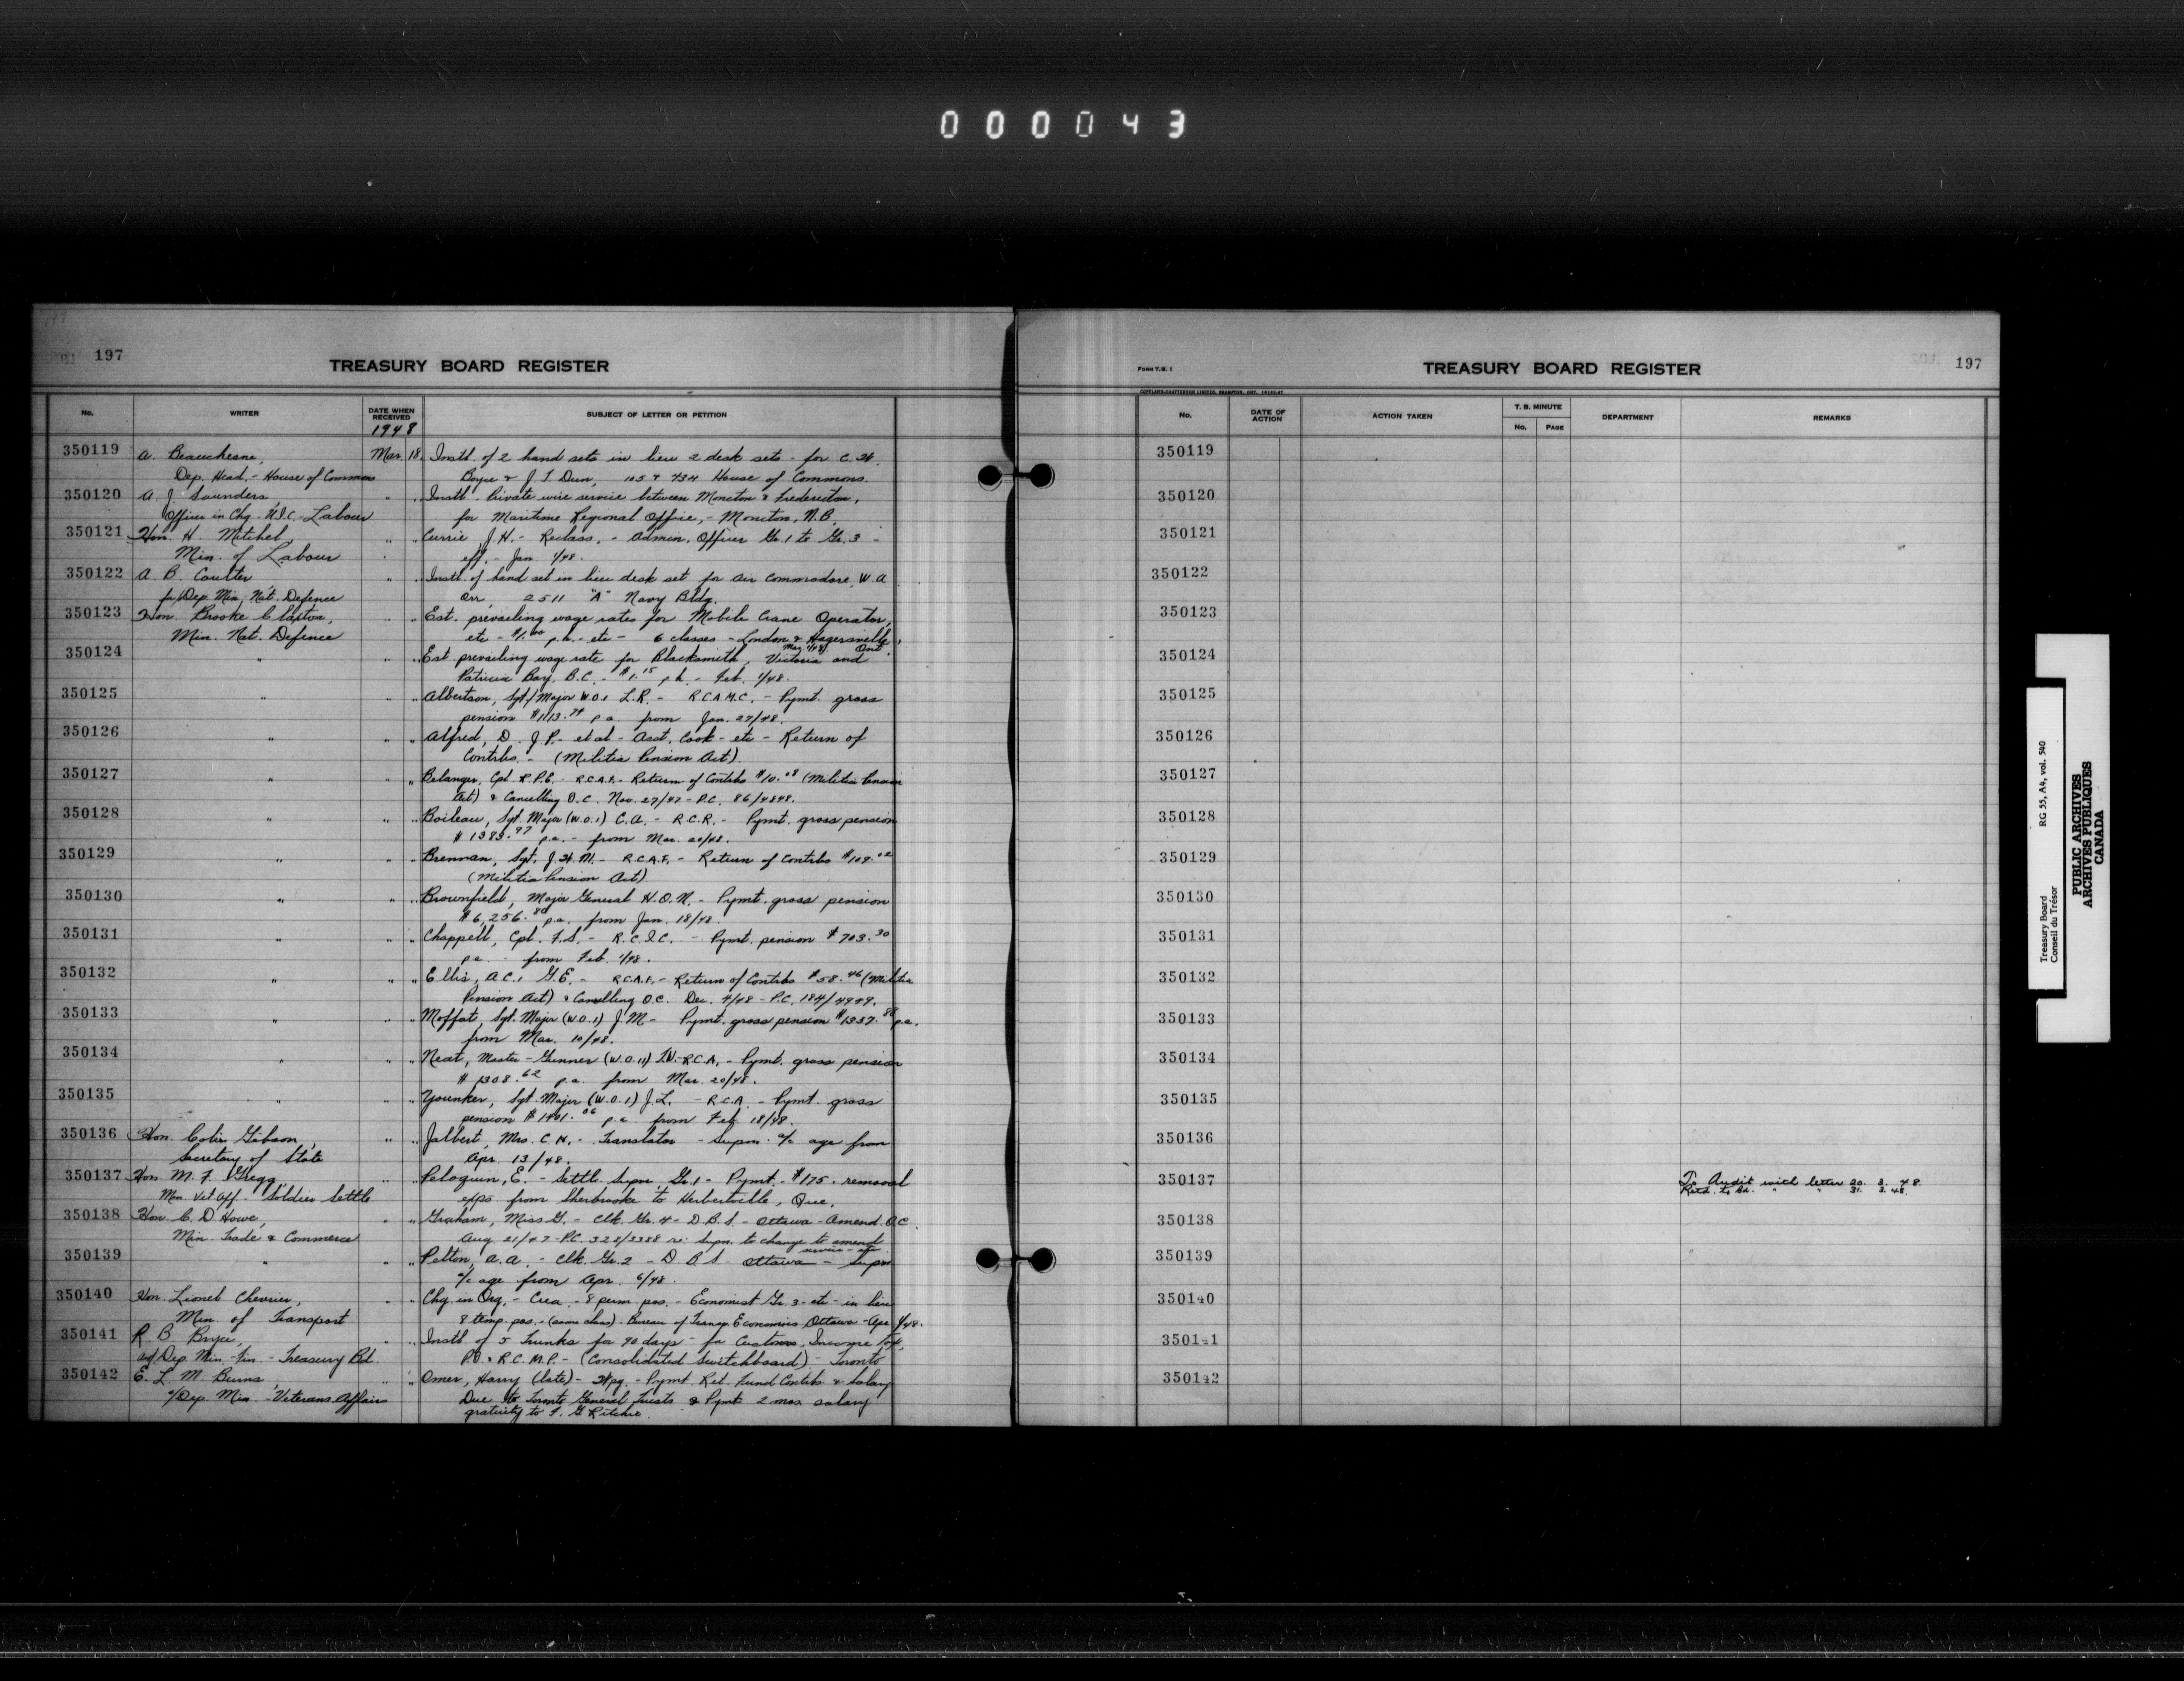 000043
197
TREASURY BOARD REGISTER
No. WRITER DATE WHEN RECEIVED SUBJECT OF LETTER OR PETITION
1948
350119 A. Beauchesne, Mar. 18. Instl. of 2 hand sets in lieu 2 desk sets - for C.W.
Dep. Head. - House of Commons Boyce & J. T. Dun, 105 & 434 House of Commons.
350120 A. J. Saunders " " Instl. Private wire service between Moncton & Fredericton,
Officer in Chg. - U.I.C. - Labour for Maritime Regional Office, - Moncton, N.B.
350121 Hon. H. Mitchel, " " Currie J.H. - Reclass. - Admin. Officer Gr. 1 to Gr. 3 -
Min. of Labour eff. - Jan. 1/48.
350122 A. B. Coulter " " Instl. of hand set in lieu desk set for Air Commodore W.A.
for/Dep. Min. Nat. Defence Orr 2511 "A" Navy Bldg.
350123 Hon. Brooke Claxton, " " Est. prevailing wage rates for Mobile Crane Operator,
Min. Nat. Defence etc - $1.00 p.h. - etc - 6 classes - London & Hagersville, Ont.
Mar. 1/48.
350124 " " " Est. prevailing wage rate for Blacksmith, Victoria and
Patricia Bay, B.C. - $1.15 p.h. - Feb. 1/48.
350125 " " " Albertson, Sgt/Major W.O.1 L.R. - R.C.A.M.C. - Pymt. gross
pension $1113.74 p.a. from Jan. 27/48.
350126 " " " Alfred, D. J. P. - et al - Asst. Cook - etc - Return of
Contribs. - (Militia Pension Act).
350127 " " " Belanger, Cpl. R.P.E. - R.C.A.F. - Return of Contribs $10.08 (Militia Pension
Act) & Cancelling O.C. Nov. 27/47 - P.C. 86/4848.
350128 " " " Boileau, Sgt. Major (W.O.1) C.A. - R.C.R. - Pymt. gross pension
$1383.97 p.a. - from Mar. 20/48.
350129 " " " Brennan, Sgt. J.W.M. - R.C.A.F. - Return of Contribs $109.02
(Militia Pension Act)
350130 " " " Brownfield, Major General H.O.N. - Pymt. gross pension
$6,256.80 p.a. from Jan. 18/48.
350131 " " " Chappell, Cpl. F.S. - R.C.I.C. - Pymt. pension $703.30
p.a. - from Feb. 1/48.
350132 " " " Ellis, A.C.1 G.E. - R.C.A.F. - Return of Contribs $58.46 (Militia
Pension Act) & Cancelling O.C. Dec. 4/48 - P.C. 184/4949.
350133 " " " Moffat, Sgt. Major (W.O.1) J.M. - Pymt. gross pension $1337.88 p.a.
from Mar. 10/48.
350134 " " " Neat, Master-Gunner (W.O.11) T.W. - R.C.A. - Pymt. gross pension
$1308.62 p.a. from Mar. 20/48.
350135 " " " Younker, Sgt. Major (W.O.1) J.L. - R.C.A. - Pymt. gross
pension $1401.06 p.a. from Feb. 18/48.
350136 Hon. Colin Gibson, " " Jalbert, Mrs. C.N. - Translator - Supn. a/c age from
Secretary of State Apr. 13/48.
350137 Hon. M. F. Gregg, " " Peloquin, E. - Settle. Supvr. Gr. 1 - Pymt. - $175. removal
Min. Vet. Aff. - Soldier Settle. exps. from Sherbrooke to Herbertville, Que.
350138 Hon. C. D. Howe, " " Graham, Miss G. - Clk. Gr. 4 - D.B.S. - Ottawa - Amend. O.C.
Min. Trade & Commerce Aug. 21/47 - P.C. 328/3388 re: Supn. to change to amend
service - etc.
350139 " " " Pelton, A.A. - Clk. Gr. 2 - D.B.S. Ottawa - Supn.
a/c age from Apr. 6/48.
350140 Hon. Lionel Chevrier, " " Chg. in Org. - Crea. - 8 perm. pos. - Economist Gr. 3 - etc - in lieu
Min. of Transport 8 temp. pos. - (same class) - Bureau of Transp. Economics Ottawa - Apr. 1/48.
350141 R. B. Bryce, " " Instl. of 5 Trunks for 90 days - for Customs, Income Tax,
Dep. Min. - Fin. - Treasury Bd. P.O. & R.C.M.P. - (Consolidated Switchboard) - Toronto
350142 E. L. M. Burns, " " Omer, Harry (late) - Pymt. Ret. Fund Contribs & Salary
a/Dep. Min. - Veterans Affairs Due to Toronto General Trusts & Pymt. 2 mos. salary
gratuity to F. G. Ritchie.
FORM T.B. 1
TREASURY BOARD REGISTER
197
COPELAND-CHATTERSON LIMITED, BRAMPTON, ONT.
No. DATE OF ACTION ACTION TAKEN T. B. MINUTE No. PAGE DEPARTMENT REMARKS
350119
350120
350121
350122
350123
350124
350125
350126
350127
350128
350129
350130
350131
350132
350133
350134
350135
350136
350137 To Audit with letter 20. 3. 48.
Retd. to Bd. " " 31. 3. 48.
350138
350139
350140
350141
350142
Treasury Board RG 55, A4, vol. 540
Conseil du Trésor
PUBLIC ARCHIVES
ARCHIVES PUBLIQUES
CANADA